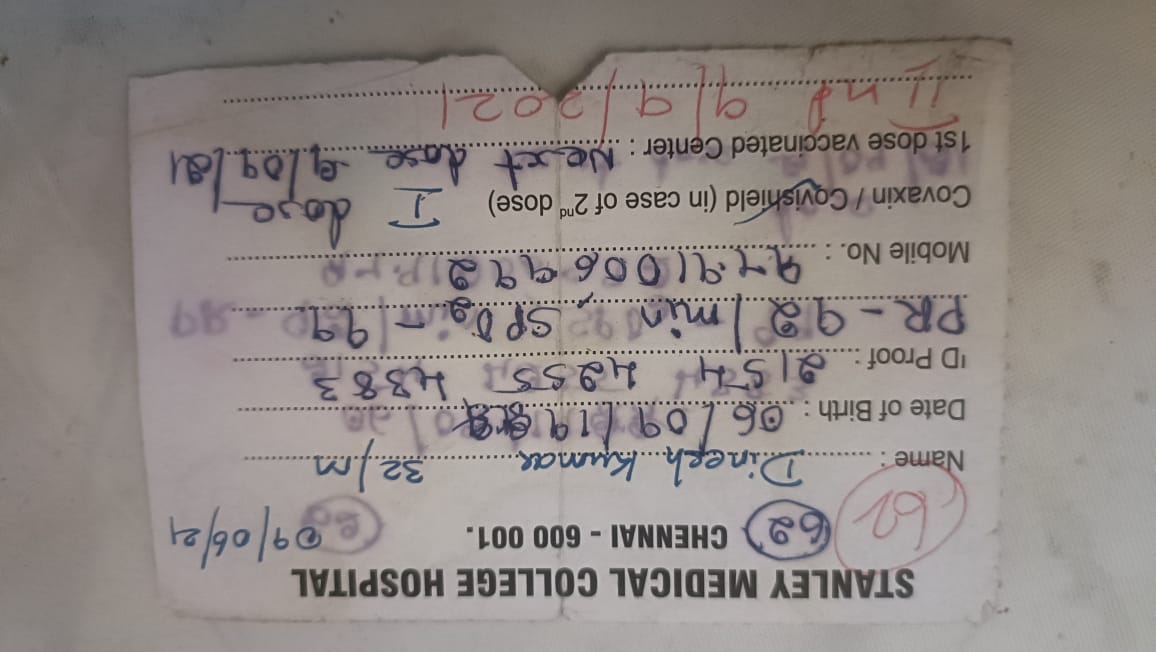 STANLEY MEDICAL COLLEGE HOSPITAL
62 62 CHENNAI - 600 001. 09/06/21
Name : Dinesh Kumar 32/M
Date of Birth : 06/09/19
ID Proof : 2154 4255 4383
PR - 92/min, SPO2 - 99
Mobile No. : 9791006992
Covaxin / Covishield (in case of 2nd dose) I dose
1st dose vaccinated Center : Next dose 9/09/21
IInd 9/9/2021